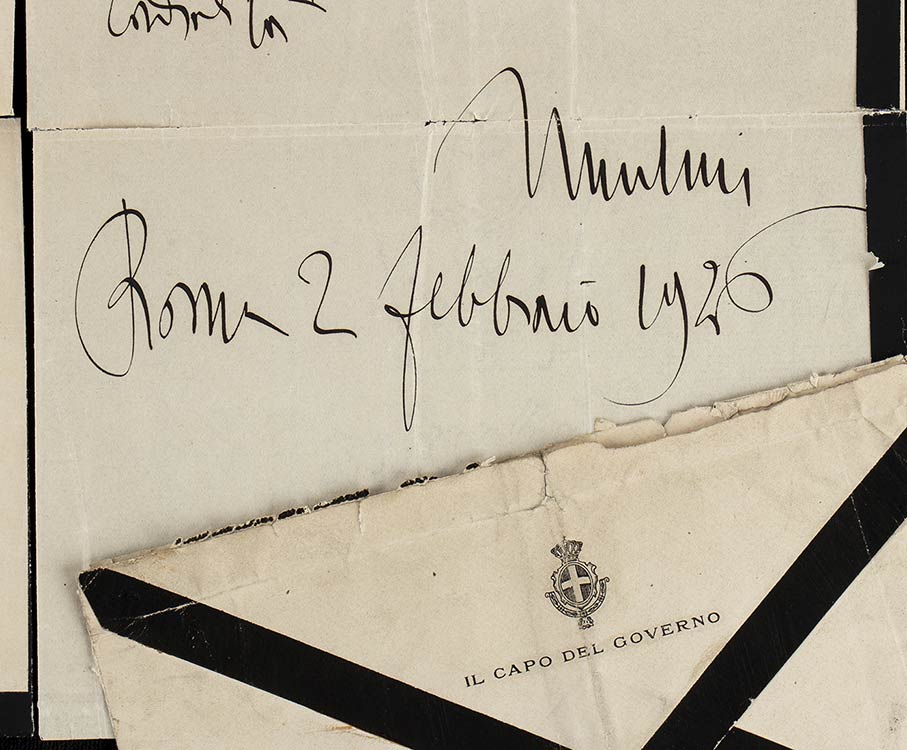 Mussolini
Roma 2 febbraio 1926
IL CAPO DEL GOVERNO